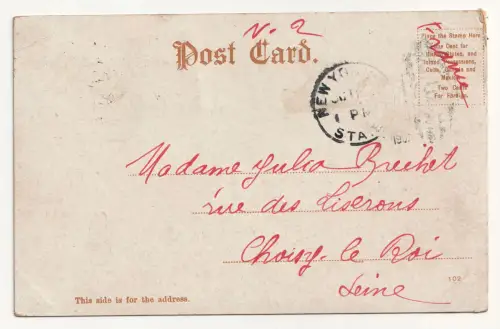 N. 2
Post Card.
Place the Stamp Here
One Cent for
United States, and
Island Possessions,
Cuba, Canada and
Mexico.
Two Cents
For Foreign.
NEW YO
1 PM
STA.
190
Madame Julia Brechet
rue des Liserons
Choisy-le Roi
Seine
103
This side is for the address.